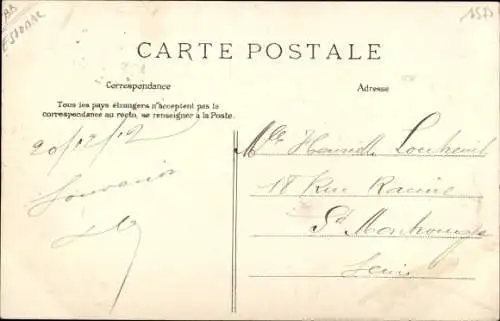 CARTE POSTALE
Correspondance
Adresse
Tous les pays étrangers n'acceptent pas la
correspondance au recto, se renseigner à la Poste.
20/12/12
Souvenir
Mlle
18 Rue Racine
Gd Montrouge
Seine